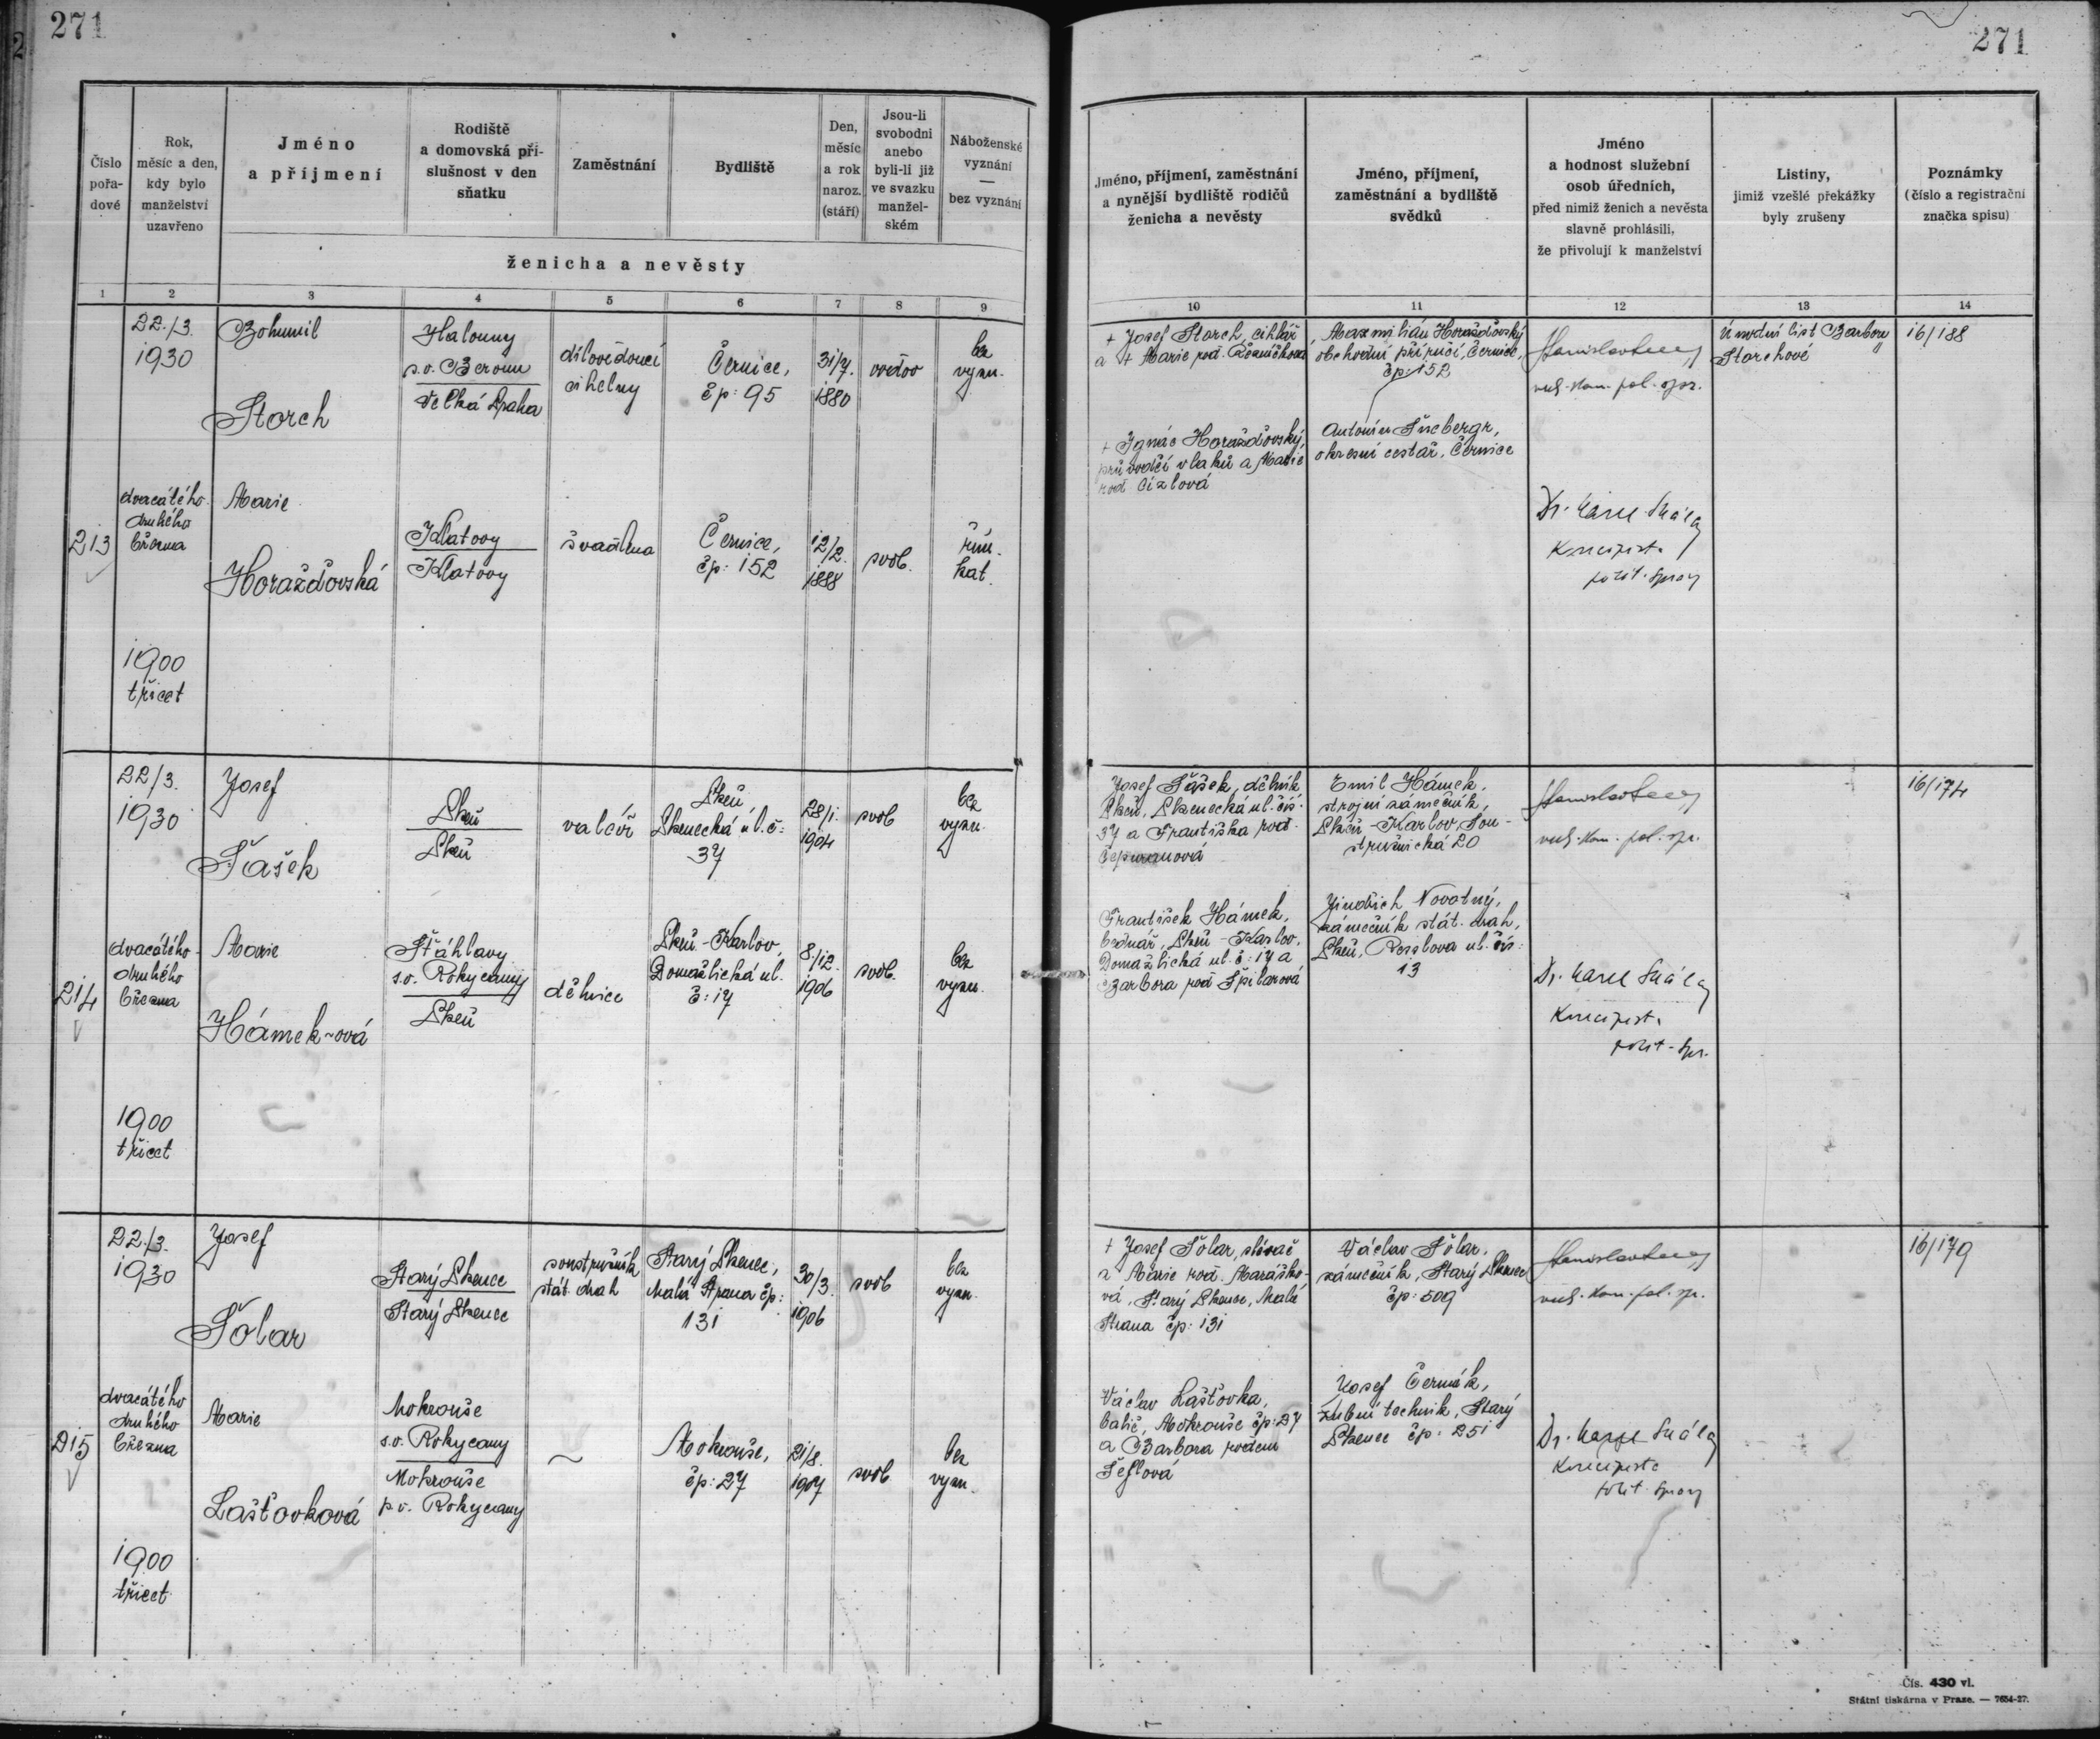 271
271
Číslo pořa-dové
Rok, měsíc a den, kdy bylo manželství uzavřeno
Jméno a příjmení
Rodiště a domovská pří-slušnost v den sňatku
Zaměstnání
Bydliště
Den, měsíc a rok naroz. (stáří)
Jsou-li svobodni anebo byli-li již ve svazku manžel-ském
Náboženské vyznání — bez vyznání
ženicha a nevěsty
Jméno, příjmení, zaměstnání a nynější bydliště rodičů ženicha a nevěsty
Jméno, příjmení, zaměstnání a bydliště svědků
Jméno a hodnost služební osob úředních, před nimiž ženich a nevěsta slavně prohlásili, že přivolují k manželství
Listiny, jimiž vzešlé překážky byly zrušeny
Poznámky (číslo a registrační značka spisu)
1 2 3 4 5 6 7 8 9 10 11 12 13 14
213
22./3.
1930
dvacátého
druhého
března
1900
třicet
Bohumil
Štorch
Halouny
s.o. Beroun
Velká Praha
dílovedoucí
cihelny
Černice,
čp: 95
31/7.
1880
vdov
bez
vyzn.
Marie
Horažďovská
Klatovy
Klatovy
švadlena
Černice,
čp: 152
12/2.
1888
svob.
řím.
kat.
+ Josef Štorch, cihlář
a + Marie roz.
+ Ignác Horažďovský,
průvodčí vlaků a Marie
roz. Cízlová
Maxmilián Horažďovský
obchodní příručí, Černice,
čp: 152
Antonín Šneberger,
okresní cestář, Černice
pol. spr.
Dr. Karel
Koncipista
polit. správy
Úmrtní list Barbory
Štorchové
16/188
214
22/3.
1930
dvacátého
druhého
března
1900
třicet
Josef
Šašek
Plzeň
Plzeň
valcíř
Plzeň,
Plzenecká ul. č:
37
28/1.
1904
svob
bez
vyzn.
Marie
Hámek~ová
Šťáhlavy
s.o. Rokycany
Plzeň
dělnice
Plzeň-Karlov,
Domažlická ul.
č: 17
8./12.
1906
svob.
bez
vyzn.
Josef Šašek, dělník
Plzeň, Plzenecká ul. čís:
37 a Františka roz.
František Hámek,
bednář, Plzeň-Karlov,
Domažlická ul. č: 17 a
Barbora roz Špilarová
Emil Hámek,
strojní zámečník,
Plzeň-Karlov, Sou-
stružnická 20
Jindřich Novotný,
zámečník stát. drah,
Plzeň, Resslova ul. čís:
13
pol. spr.
Dr. Karel
Koncipista
polit. spr.
16/174
215
22./3.
1930
dvacátého
druhého
března
1900
třicet
Josef
Šolar
Starý Plzenec
Starý Plzenec
soustružník
stát. drah
Starý Plzenec,
Malá Strana čp:
131
30/3.
1906
svob
bez
vyzn.
Marie
Lašťovková
Mokrouše
s.o. Rokycany
Mokrouše
p.o. Rokycany
~
Mokrouše,
čp: 27
21/8.
1907
svob
bez
vyzn.
+ Josef Šolar, slévač
a Marie roz. Maršíko-
vá, Starý Plzenec, Malá
Strana čp: 131
Václav Lašťovka,
balič, Mokrouše čp: 27
a Barbora rozen
Šeflová
Václav Šolar,
zámečník, Starý Plzenec
čp: 509
Josef Čermák,
zubní technik, Starý
Plzenec čp: 251
pol. spr.
Dr. Karel
Koncipista
polit. správy
16/179
Čís. 430 vl.
Státní tiskárna v Praze. — 7654-27.